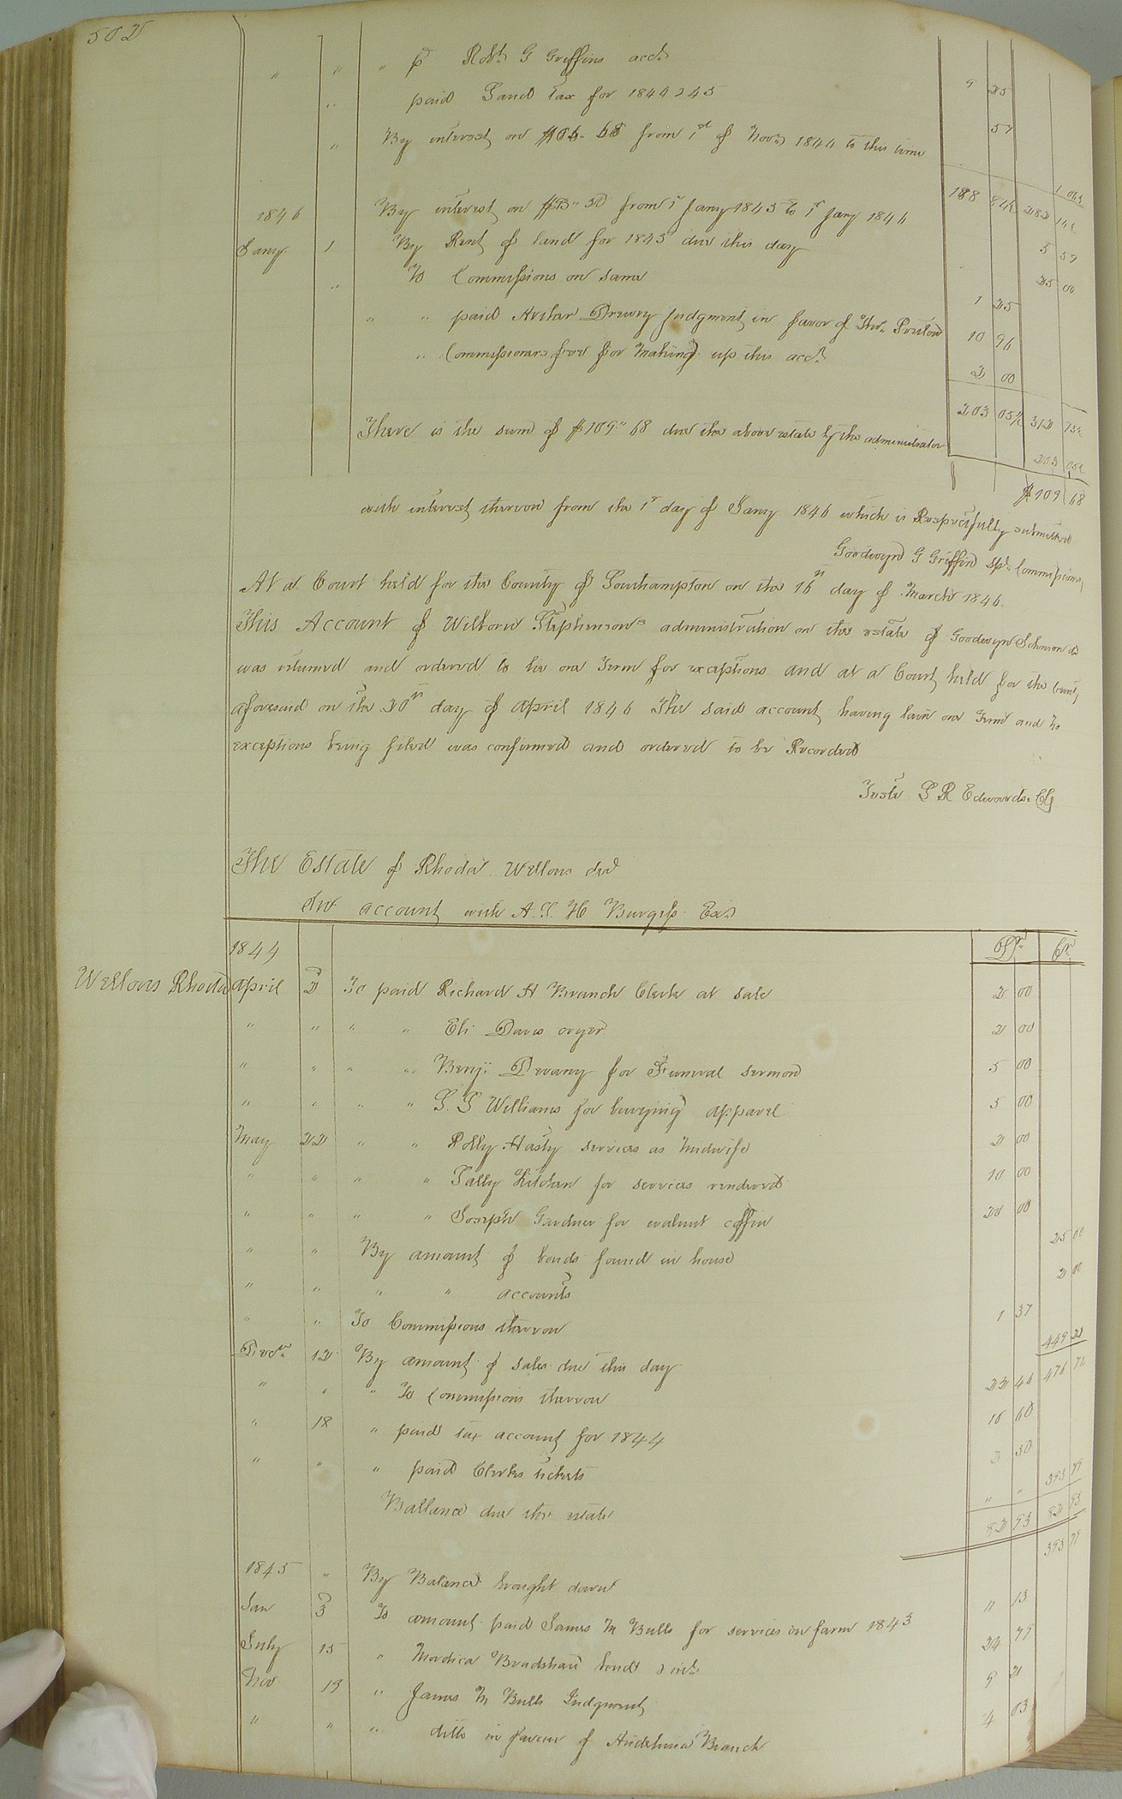 502
" " " p Robt G Griffins acct 9 25
" paid Land Tax for 1844 & 45 57
" By interest on from 1st of Novr 1844 to this time 1 04½
188 84½ 282 14½
1846 By interest on from 1st Jany 1845 to 1st Jany 1846 5 59
Jany 1 By Rent of land for 1845 due this day 25 00
" To Commissions on same 1 25
" " paid Arthur Drewry judgment in favor of Thos. Pretlow 10 96
" Commissioners fee for making up this acct 2 00
203 05½ 312 73½
There is the sum of $109"68 due the above estate by the administrator 203 05½
$109 68
with interest thereon from the 1st day of Jany 1846 which is Respectfully submitted
Goodwyn G Griffin Spl. Commissioner
At a Court held for the County of Southampton on the 16th day of March 1846
This Account of Wilborn Stephenson's administration on the estate of Goodwyn
was returned and ordered to lie one Term for exceptions and at a Court held for the County
aforesaid on the 20th day of April 1846 The said account having lain one Term and No
exceptions being filed was confirmed and ordered to be Recorded
Teste L R Edwards Clk
The Estate of Rhoda Wellons decd
In account with A. S. H Burgess Exr
1844 Dr. Cr.
Wellons Rhoda April 2 To paid Richard H Branch Clerk at sale 2 00
" " " " Eli Davis cryer 2 00
" " " " Benj: Devany for Funeral sermon 5 00
" " " " Williams for burying apparel 5 00
May 22 " " Polly Hasty services as Midwife 2 00
" " " " Sally Kitchen for services rendered 10 00
" " " " Joseph Gardner for walnut coffin 20 00
" " By amount of bonds found in house 25 00
" " " " accounts 2 00
" " To Commissions thereon 1 37
Decr 12 By amount of sales due this day 449 2
" " " To Commissions thereon 22 46 476 72
" 18 " paid tax account for 1844 10 60
" " " paid Clerks tickets 2 50
Ballance due the estate " " 393 79
82 93 82 93
393 79
1845 " By Balance brought down
Jan 3 To amount paid James M Bulls for services on farm 1843 " 13
July 15 " Mordica Bradshaw bond & int. 24 79
Nov 19 " James M Bulls Judgment 9 21
" " " ditto in favour of Branch 4 03